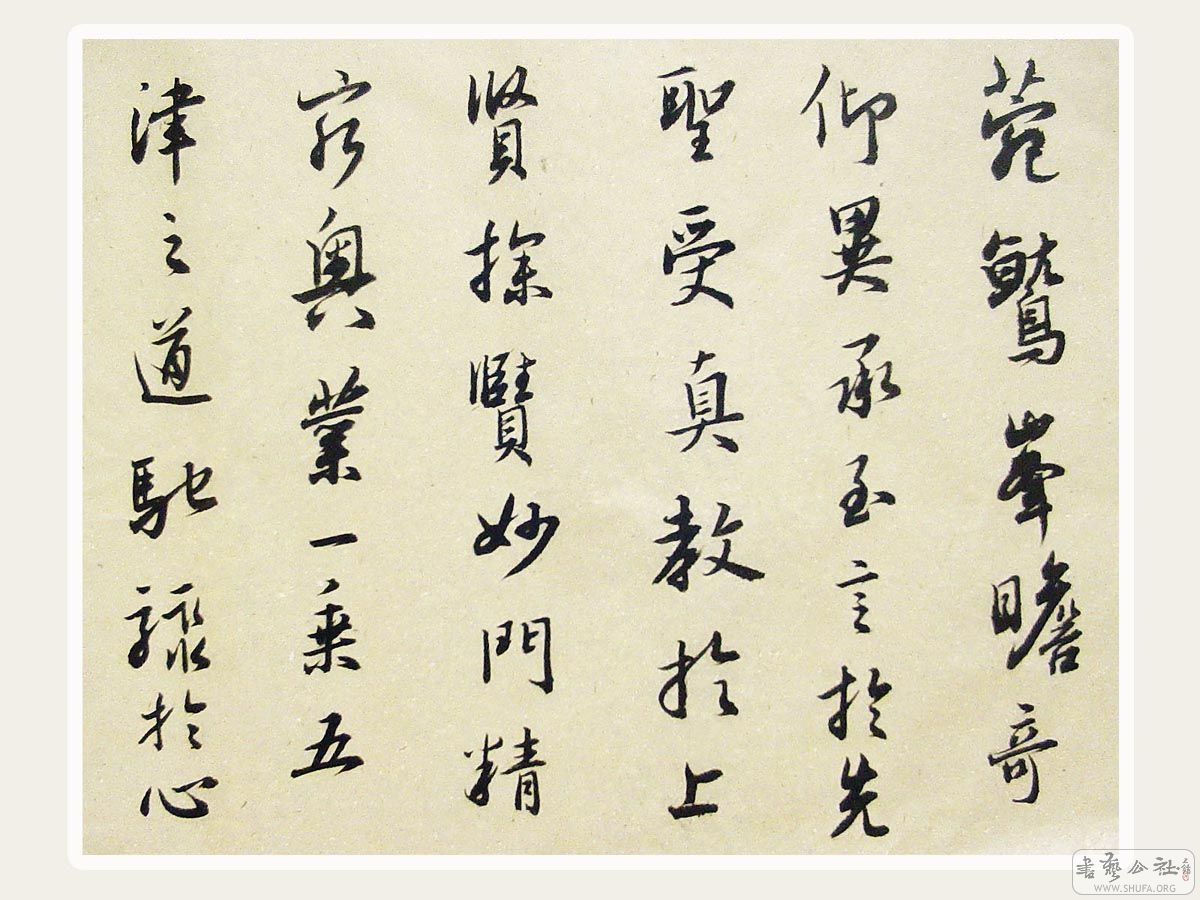 菀鷲峯瞻奇
仰異承至言於先
聖受真教於上
賢探賾妙門精
窮奧業一乘五
津之道馳驟於心
書藝公社
WWW.SHUFA.ORG